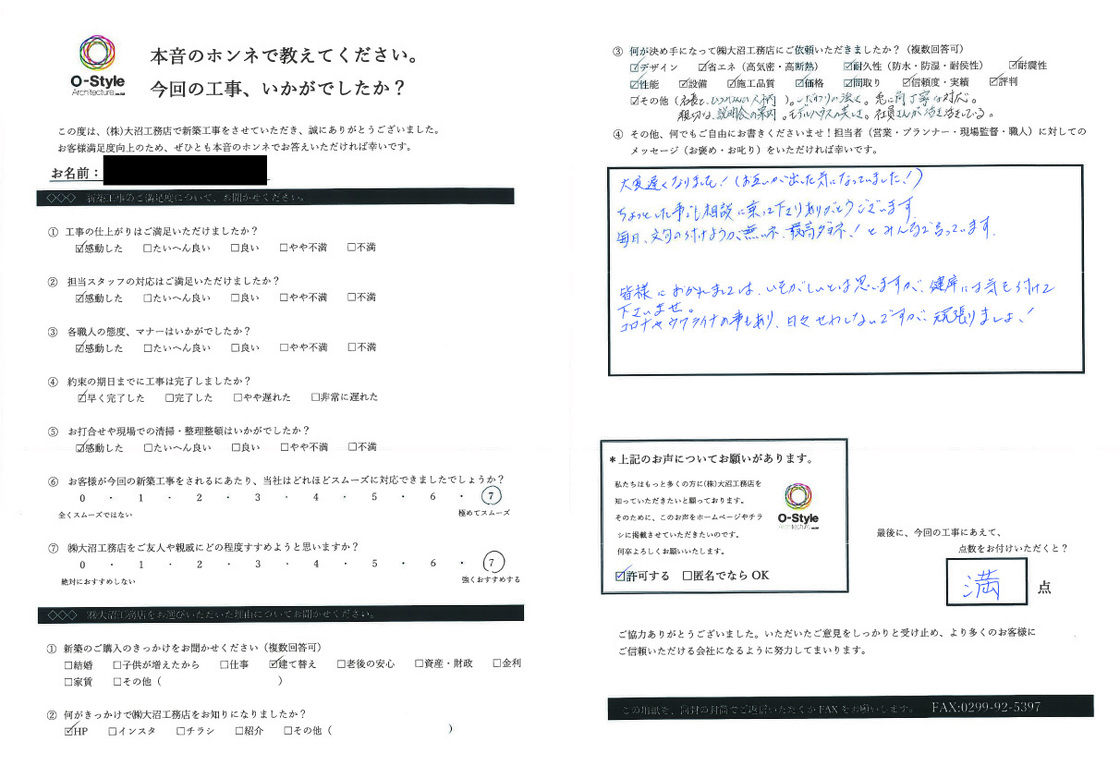 O-Style
Architecture
本音のホンネで教えてください。
今回の工事、いかがでしたか？
この度は、(株)大沼工務店で新築工事をさせていただき、誠にありがとうございました。
お客様満足度向上のため、ぜひとも本音のホンネでお答えいただければ幸いです。
お名前：
◇◇◇ 新築工事のご満足度について、お聞かせください。
① 工事の仕上がりはご満足いただけましたか？
☑感動した ☐たいへん良い ☐良い ☐やや不満 ☐不満
② 担当スタッフの対応はご満足いただけましたか？
☑感動した ☐たいへん良い ☐良い ☐やや不満 ☐不満
③ 各職人の態度、マナーはいかがでしたか？
☑感動した ☐たいへん良い ☐良い ☐やや不満 ☐不満
④ 約束の期日までに工事は完了しましたか？
☑早く完了した ☐完了した ☐やや遅れた ☐非常に遅れた
⑤ お打合せや現場での清掃・整理整頓はいかがでしたか？
☑感動した ☐たいへん良い ☐良い ☐やや不満 ☐不満
⑥ お客様が今回の新築工事をされるにあたり、当社はどれほどスムーズに対応できましたでしょうか？
0 ・ 1 ・ 2 ・ 3 ・ 4 ・ 5 ・ 6 ・ 7
全くスムーズではない 極めてスムーズ
⑦ ㈱大沼工務店をご友人や親戚にどの程度すすめようと思いますか？
0 ・ 1 ・ 2 ・ 3 ・ 4 ・ 5 ・ 6 ・ 7
絶対におすすめしない 強くおすすめする
◇◇◇ ㈱大沼工務店をお選びいただいた理由についてお聞かせください。
① 新築のご購入のきっかけをお聞かせください（複数回答可）
☐結婚 ☐子供が増えたから ☐仕事 ☑建て替え ☐老後の安心 ☐資産・財政 ☐金利
☐家賃 ☐その他（ ）
② 何がきっかけで㈱大沼工務店をお知りになりましたか？
☑HP ☐インスタ ☐チラシ ☐紹介 ☐その他（ ）
③ 何が決め手になって㈱大沼工務店にご依頼いただきましたか？（複数回答可）
☑デザイン ☑省エネ（高気密・高断熱） ☑耐久性（防水・防湿・耐侯性） ☑耐震性
☑性能 ☑設備 ☑施工品質 ☑価格 ☑間取り ☑信頼度・実績 ☑評判
☑その他（社長と、 人柄 ）。こだわりが強く。 丁寧な対応。
親切な説明会の案内。モデルハウスの 。社員さんが 活をしている。
④ その他、何でもご自由にお書きくださいませ！担当者（営業・プランナー・現場監督・職人）に対しての
メッセージ（お褒め・お叱り）をいただければ幸いです。
大変遅くなりました！（お互いが出た気になっていました！）
ちょっとした事でも相談に乗って下さりありがとうございます
毎日、文句の付けようが無いネ、最高ダネ！とみんなで言っています。
皆様におかれましては、いそがしいとは思いますが、健康には気を付けて
下さいませ。
コロナやウクライナの事もあり、日々せわしないですが、頑張りましょ！
＊上記のお声についてお願いがあります。
私たちはもっと多くの方に(株)大沼工務店を
知っていただきたいと願っております。
そのために、このお声をホームページやチラ
シに掲載させていただきたいのです。
何卒よろしくお願いいたします。
O-Style
Architecture
☑許可する ☐匿名でなら OK
最後に、今回の工事にあえて、
点数をお付けいただくと？
満 点
ご協力ありがとうございました。いただいたご意見をしっかりと受け止め、より多くのお客様に
ご信頼いただける会社になるように努力してまいります。
この用紙を、同封の封筒でご返信いただくかFAXをお願いします。 FAX:0299-92-5397